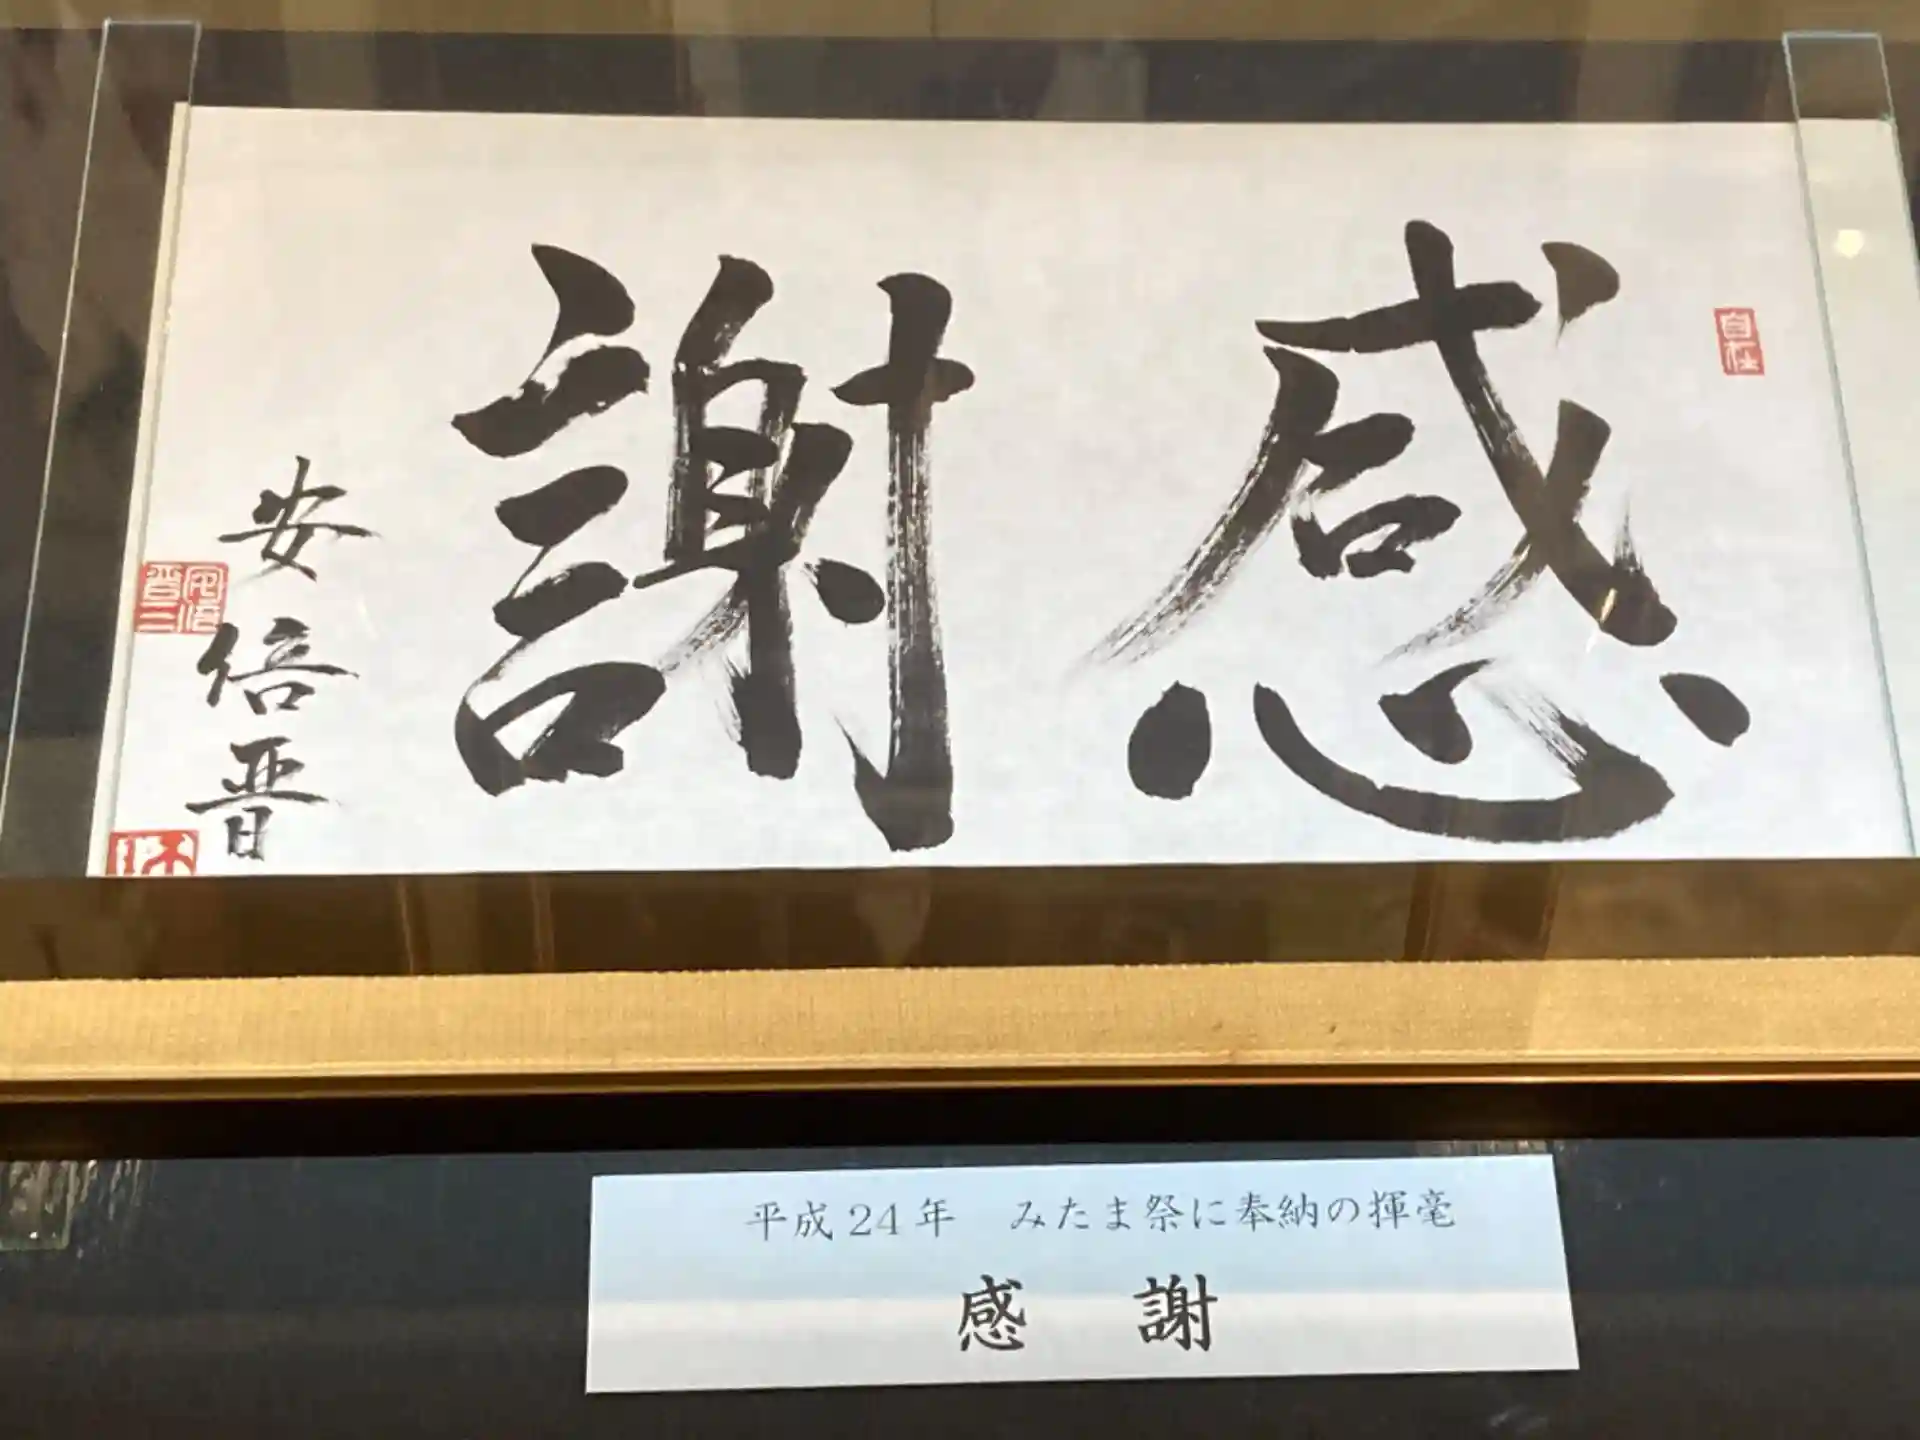 感謝
自在
安倍晋
安倍晋三
平成24年 みたま祭に奉納の揮毫
感 謝